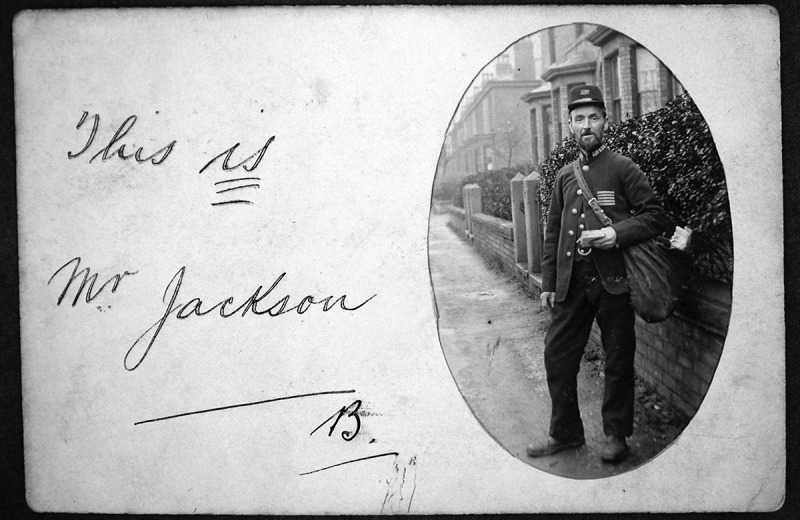 This is
Mr Jackson
B.